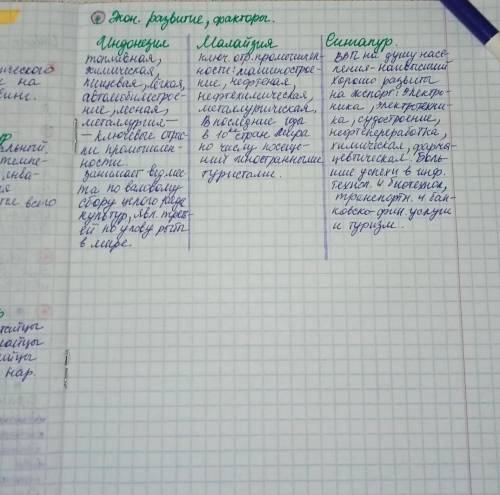 Экон. развитие, факторы.
Индонезия
топливная,
химическая,
пищевая, лёгкая,
автомобилестрое-
ние, лесная,
металлургия-
- ключевые отрас-
ли промышлен-
ности.
занимает вед. мес-
та по валовому
сбору целого ряда
культур, явл. треть-
ей по улову рыбы
в мире.
Малайзия
ключ. отр. промышлен-
ности: машинострое-
ние, нефтяная
нефтехимическая,
металлургическая.
В последние года
в 10ке стран мира
по числу посеще-
ний иностранными
туристами.
Сингапур.
ВВП на душу насе-
ления-наивысший
хорошо развиты
на экспорт: электро-
ника, электротехни-
ка, судостроение,
нефтепереработка,
химическая, фарма-
цевтическая. Боль-
шие успехи в инф.
технол. и биотехнол,
транспортн. и бан-
ковско-фин. услуги
и туризм.
нар.